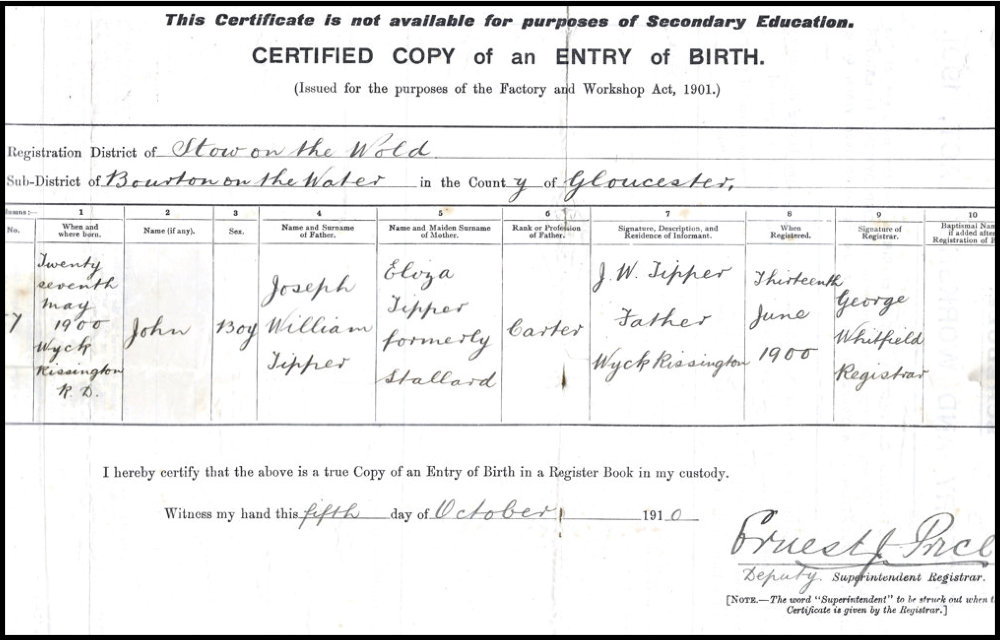 This Certificate is not available for purposes of Secondary Education.
CERTIFIED COPY of an ENTRY of BIRTH.
(Issued for the purposes of the Factory and Workshop Act, 1901.)
Registration District of Stow on the Wold
Sub-District of Bourton on the Water in the County of Gloucester,
1 2 3 4 5 6 7 8 9 10
No. When and where born. Name (if any). Sex. Name and Surname of Father. Name and Maiden Surname of Mother. Rank or Profession of Father. Signature, Description, and Residence of Informant. When Registered. Signature of Registrar. Baptismal if added after Registration of
7
Twenty
seventh
May
1900
Wyck
Rissington
R. D.
John
Boy
Joseph
William
Tipper
Eliza
Tipper
formerly
Stallard
Carter
J. W. Tipper
Father
Wyck Rissington
Thirteenth
June
1900
George
Whitfield
Registrar
I hereby certify that the above is a true Copy of an Entry of Birth in a Register Book in my custody.
Witness my hand this fifth day of October 1910
Ernest J.
Deputy. Superintendent Registrar.
[NOTE.—The word "Superintendent" to be struck out when
Certificate is given by the Registrar.]